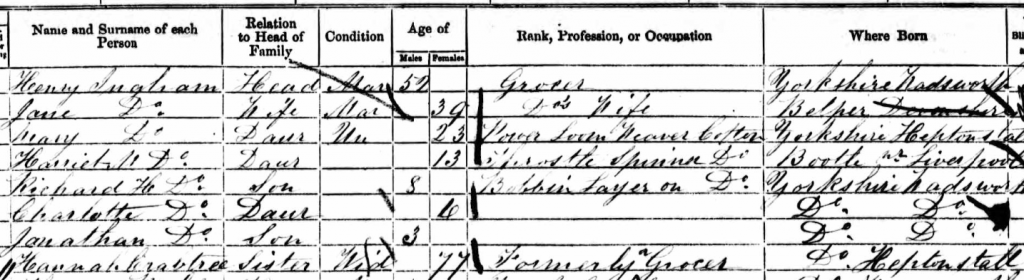 Name and Surname of each Person Relation to Head of Family Condition Age of Males Females Rank, Profession, or Occupation Where Born
Henry Ingham Head Mar 52 Grocer Yorkshire Wadsworth
Jane Do. Wife Mar 39 Do's Wife Belper
Mary Do Daur Un 23 Power Loom Weaver Cotton Yorkshire Heptonstall
Harriet Do. Daur 13 Throstle Spinner Do Bootle nr Liverpool
Richard H Do. Son 8 Bobbin Layer on Do. Yorkshire Wadsworth
Charlotte Do. Daur 6 Do. Do.
Jonathan Do. Son 3 Do. Do.
Hannah Crabtree Sister Wid 77 Formerly a Grocer Do. Heptonstall